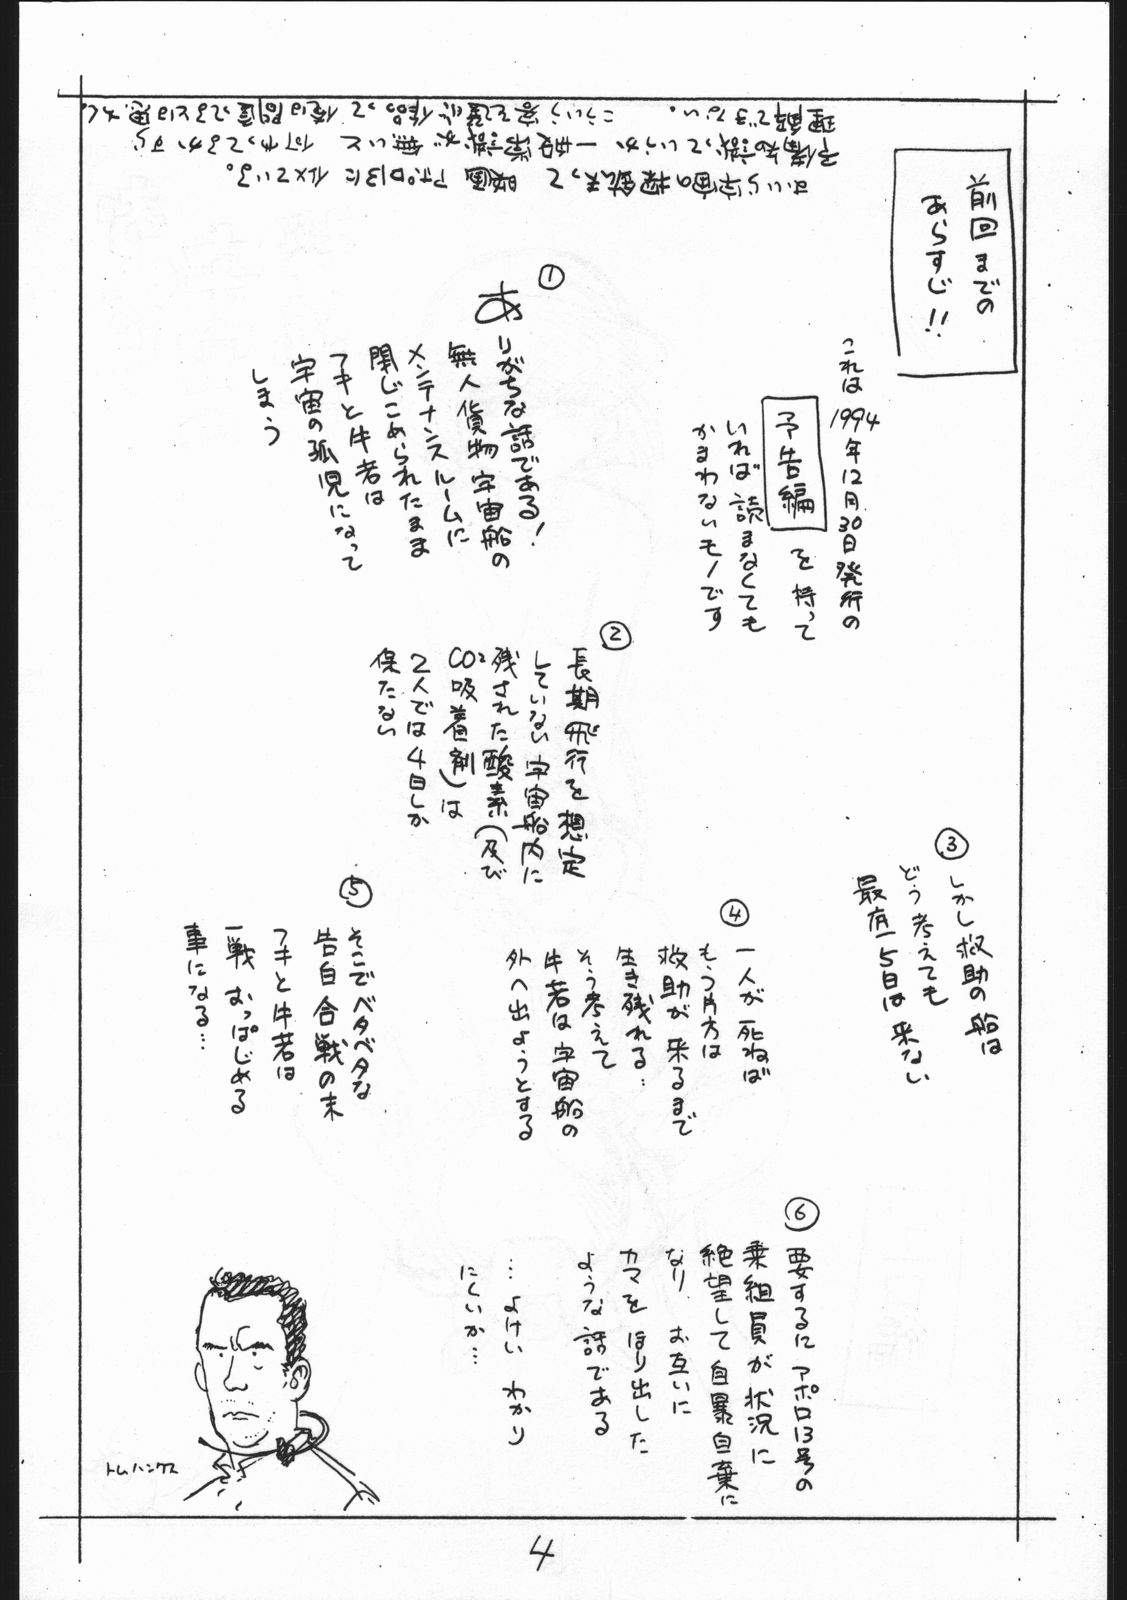 前回までの
あらすじ!!
これは1994年12月30日発行の
予告編を持って
いれば読まなくても
かまわないモノです
①
ありがちな話である!
無人貨物宇宙船の
メンテナンスルームに
閉じこめられたまま
フキと牛若は
宇宙の孤児になって
しまう
②
長期飛行を想定
していない宇宙船内に
残された酸素(及び
CO²吸着剤)は
2人では4日しか
保たない
③
しかし救助の船は
どう考えても
最底15日は来ない
④
一人が死ねば
もう片方は
救助が来るまで
生き残れる…
そう考えて
牛若は宇宙船の
外へ出ようとする
⑤
そこでベタベタな
告白合戦の末
フキと牛若は
一戦おっぱじめる
事になる…
⑥
要するにアポロ13号の
乗組員が状況に
絶望して自暴自棄に
なり お互いに
カマをほり出した
ような話である
…よけいわかり
にくいか…
トムハンクス
映画アポロ13に似ている。
予備知識っていうか一般常識が無いと何やってるかすら
理解できない。 こういう客を置いて
4